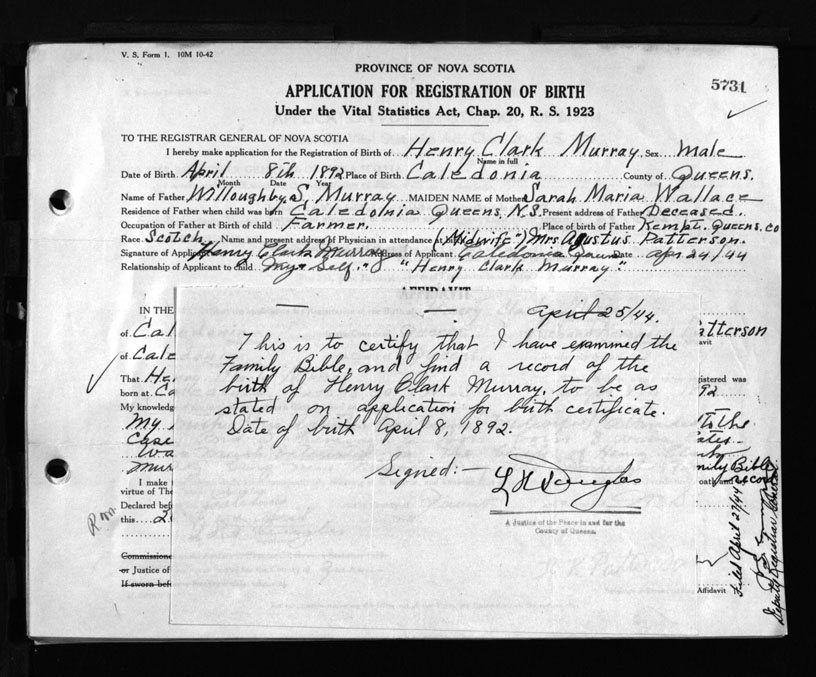 V. S. Form 1. 10M 10-42
PROVINCE OF NOVA SCOTIA
5731
APPLICATION FOR REGISTRATION OF BIRTH
Under the Vital Statistics Act, Chap. 20, R. S. 1923
TO THE REGISTRAR GENERAL OF NOVA SCOTIA
I hereby make application for the Registration of Birth of Henry Clark Murray Sex male
Name in full
Date of Birth April 8th 1892 Place of Birth Caledonia County of Queens.
Month Date Year
Name of Father Willoughby S. Murray MAIDEN NAME of Mother Sarah Maria Wallace
Residence of Father when child was born Caledolnia Queens N.S. Present address of Father Deceased.
Occupation of Father at Birth of child Farmer. Place of birth of Father Kempt. Queens. co
Race Scotch Name and present address of Physician in attendance at birth (Midwife") Mrs Agustus Patterson.
Signature of Applicant Henry Clark Murray Address of Applicant Caledonia Queens Date apr 24/44
Relationship of Applicant to child "My Self." "Henry Clark Murray"
AFFIDAVIT
IN THE
of Cal
of Cale
That He
born at Ca
My knowledg
My
Case
Wa
Murr
I make
virtue of The
Declared bef
this 2
Commissione
or Justice of
If sworn bef
April 25/44.
This is to certify that I have examined the
Family Bible, and find a record of the
birth of Henry Clark Murray, to be as
stated on application for birth certificate.
Date of birth April 8, 1892.
Signed:- L H Douglas
A Justice of the Peace in and for the
County of Queens.
atterson
avit
egistered was
92
to the
mily Bible
record
oath and
Affidavit
Filed April 27/44
Deputy Registrar General.